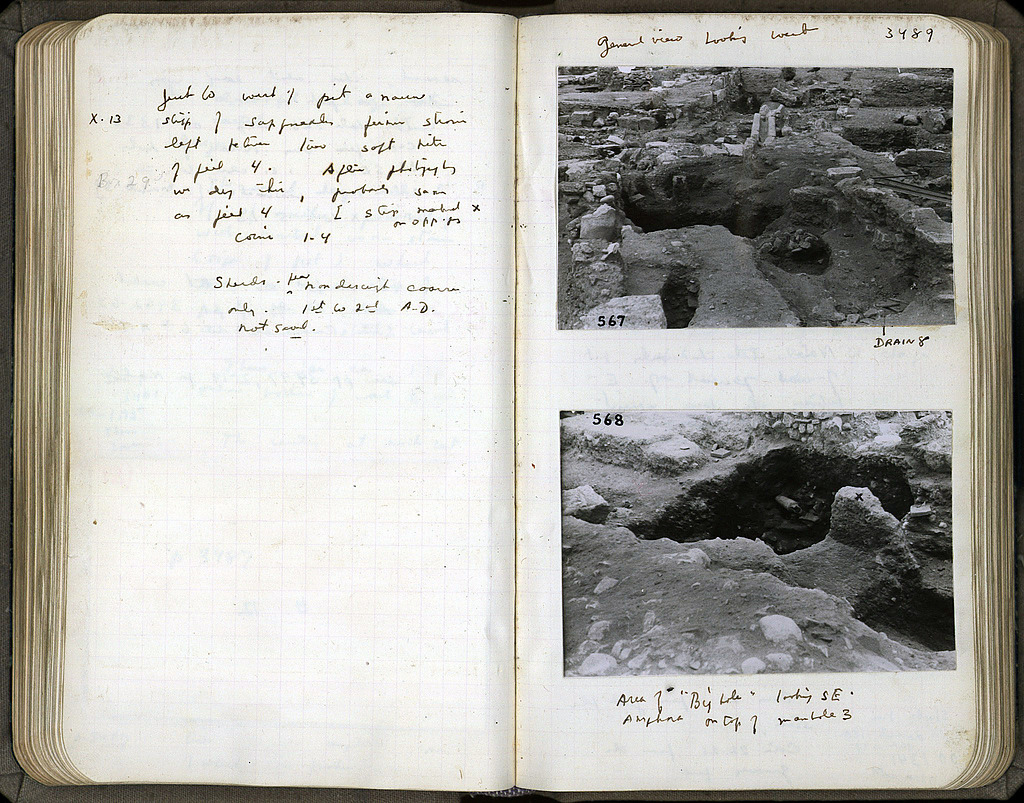 Just to west of pit a narrow
X·13 strip of supposedly firmer strosis
left between two soft pits
of fill 4. After photography
Bx29
we dig this, probably same
as fill 4 [ strip marked x
on opp. pg
Coins 1-4
Sherds. few nondescript coarse
only. 1st to 2nd A.D.
not saved.
General view looking west 3489
567
DRAIN 8
568
x
Area of "Big hole" looking SE.
Amphora on top of manhole 3